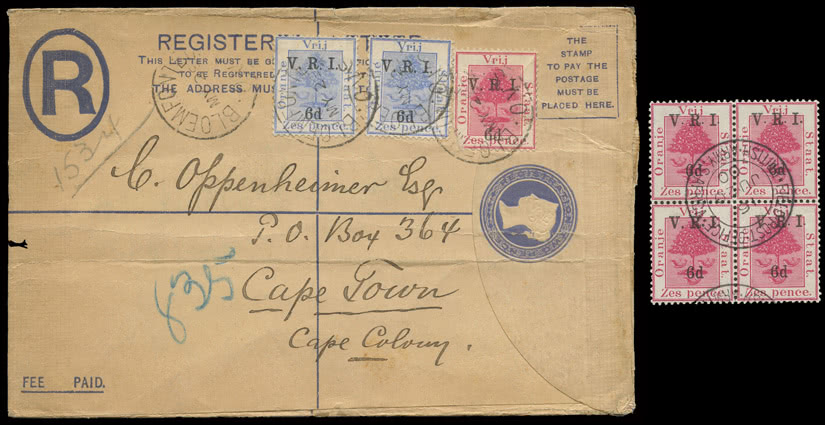 REGISTERED
THIS LETTER MUST BE
TO BE REGISTERED
THE ADDRESS MUST
THE
STAMP
TO PAY THE
POSTAGE
MUST BE
PLACED HERE.
R
Vrij
V. R. I.
Oranje
6d
Zes pence.
Vrij
V. R. I.
6d
Zes pence.
Vrij
V. R. I.
Oranje
Staat.
6d
Zes pence.
BLOEMFONTEIN
1534
C. Oppenheimer Esq.
P.O. Box 364
Cape Town
Cape Colony.
835
REGISTRATION
FEE PAID.
Vrij
V. R. I.
Oranje
6d
Zes pence.
Vrij
V. R. I
Staat.
6d
Zes pence.
Vrij
V. R. I.
Oranje
6d
Zes pence.
Vrij
V. R. I
Oranje
Staat.
6d
Zes pence.